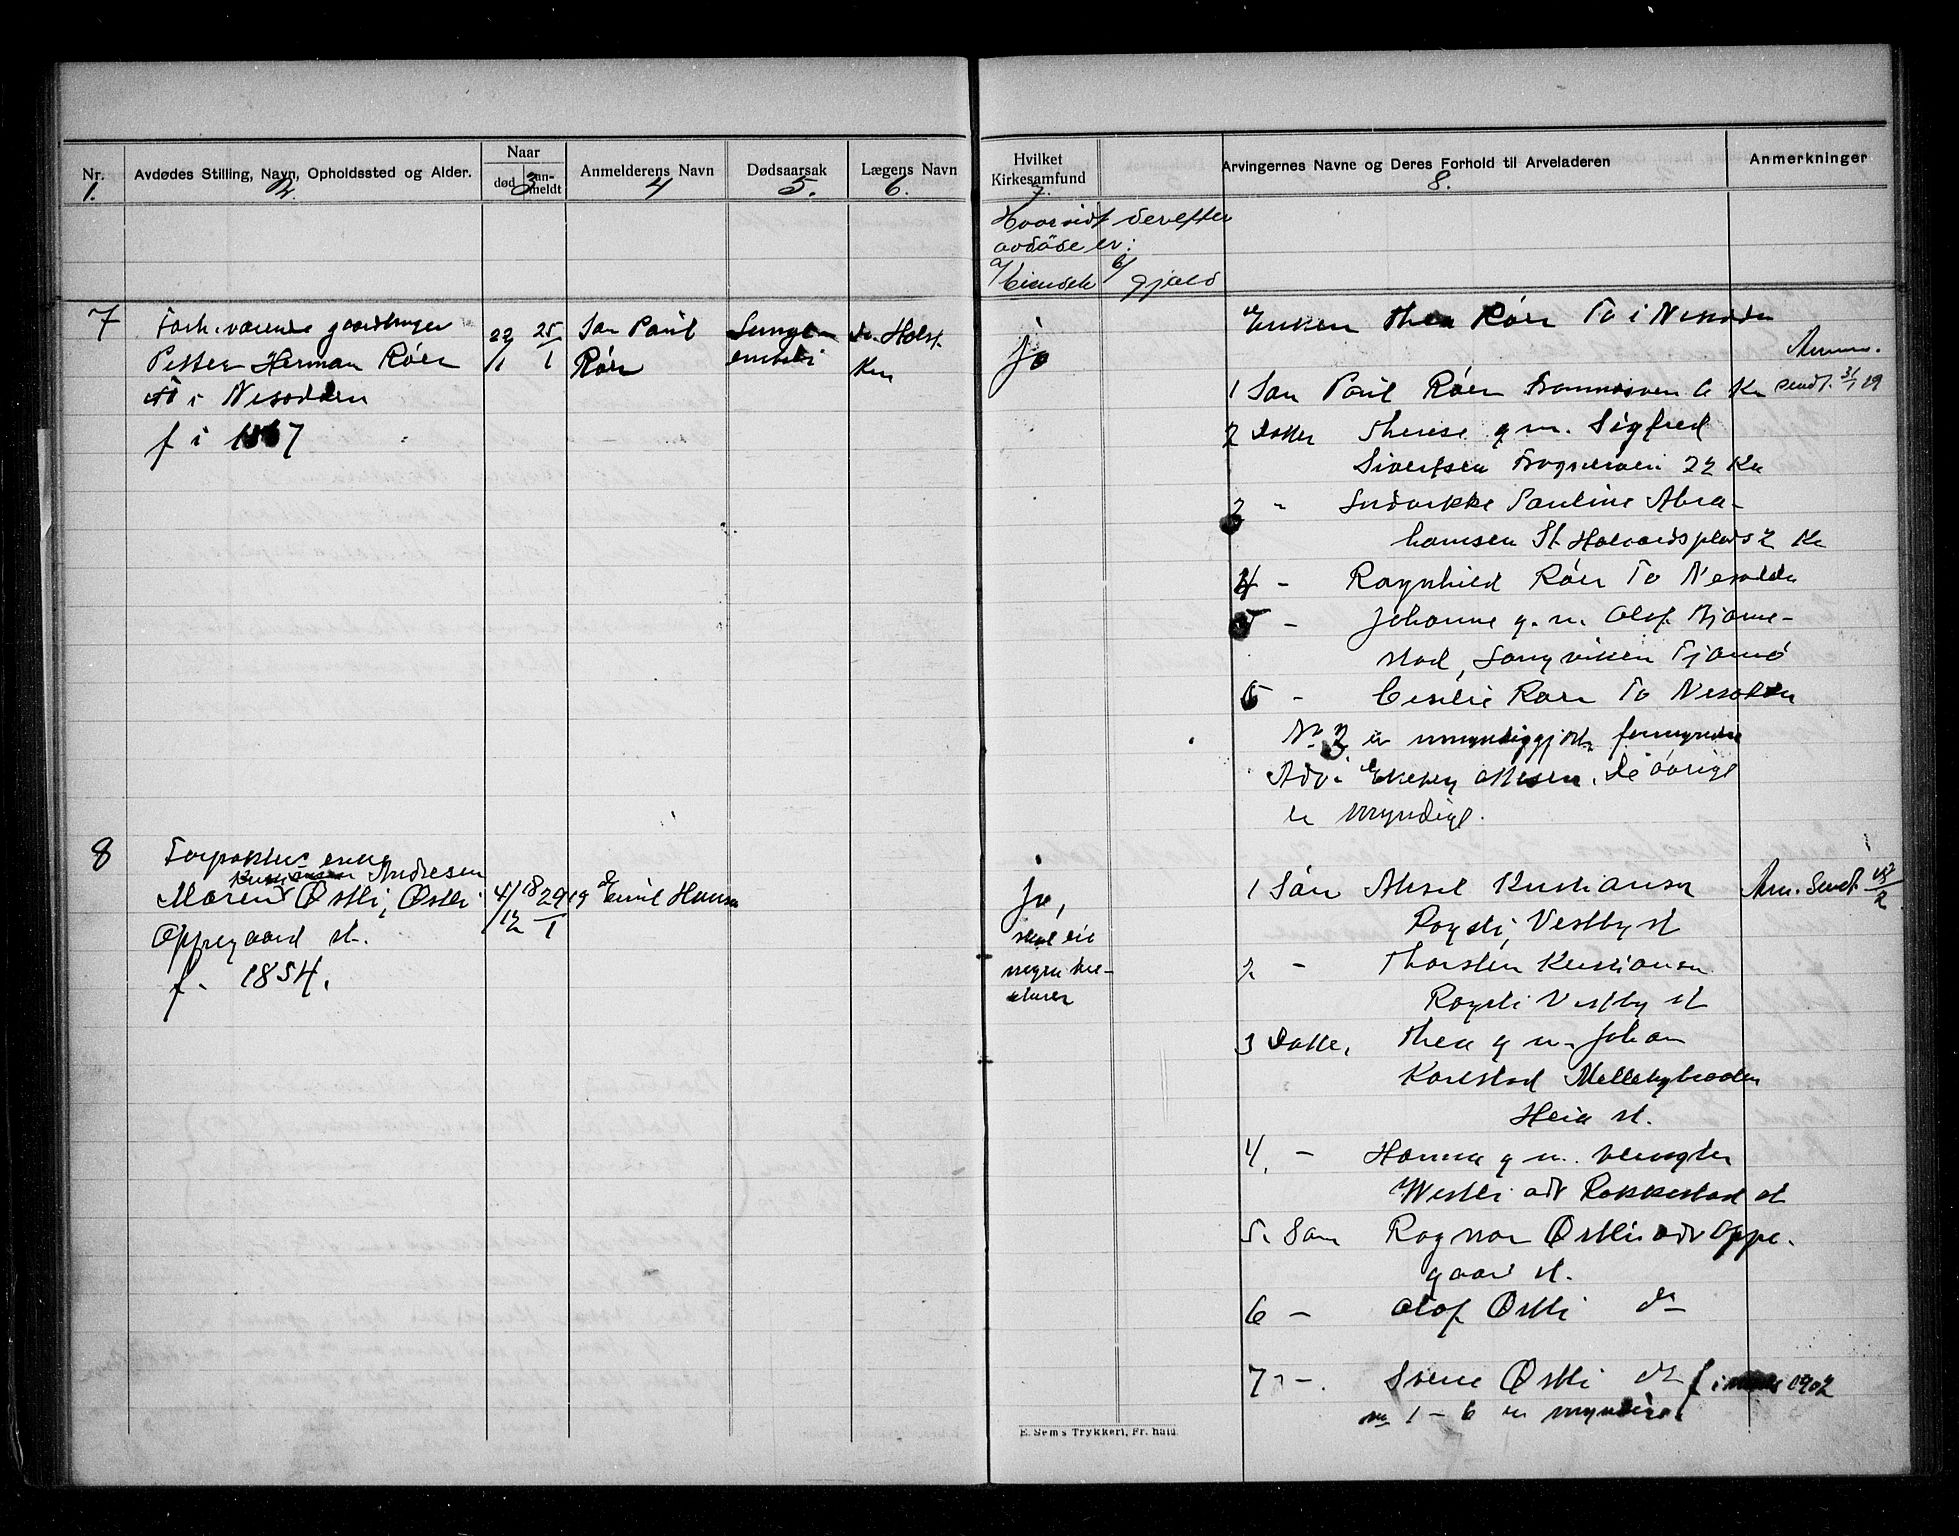 Nr.
1.
Avdødes Stilling, Navn, Opholdssted og Alder.
2.
Naar
død
an-
meldt
3
Anmelderens Navn
4
Dødsaarsak
5.
Lægens Navn
6.
Hvilket
Kirkesamfund
7.
Arvingernes Navne og Deres Forhold til Arveladeren
8.
Anmerkninger
Hvorvidt derefter
avdöde er:
a/
b/
Eiendele
gjæld
7
Forh.værende gaardbruger
Petter Herman Röer
i Nesodden
f i 1867
22/1
25/1
Sön Paul
Röer
Lunge-
dr. Holst
Kra
ja
Enken Thea Röer To i Nesodden
Anm.
1 Sön Paul Röer 6 Kr
sendt. 31/1 19
2 Datter Therese g m. Sigfred
Sivertsen Frognerveien 22 Kra
3 - Ludovikke Pauline Abra-
hamsen St. Halvardsplads 2 Kr
4 - Ragnhild Röer To Nesodden
5 - Johanne g. m. Olaf Bjonne-
stad, Langviken Tjømö
6 - Cesilie Röer To Nesodden
No 3 er umyndiggjort, formynder
Adv. Ottesen. De övrige
er myndige.
8
Forpakter enke
Andresen
Maren Østli, Østli
Oppegaard st.
f. 1854.
4/12 18
29/1 19
Emil Hansen
ja,
1 Sön Aksel Kristiansen
Anm. Sendt
Vestby st
2 - Thorsten Kristiansen
Vestby st
3 Datter Thea g m. Johan
Karlstad Mellebybraaten
Heia st.
4. - Hanna g m.
Westli adr Rakkestad st
5. Sön Ragnar Østli adr Oppe-
gaard st.
6 - Olaf Østli do
7 - Sverre Østli do f i 1902
No 1 - 6 er myndige
E. Sem's Trykkeri, Fr.hald.